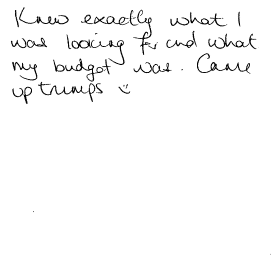 Knew exactly what I
was looking for and what
my budget was. Came
up trumps :)